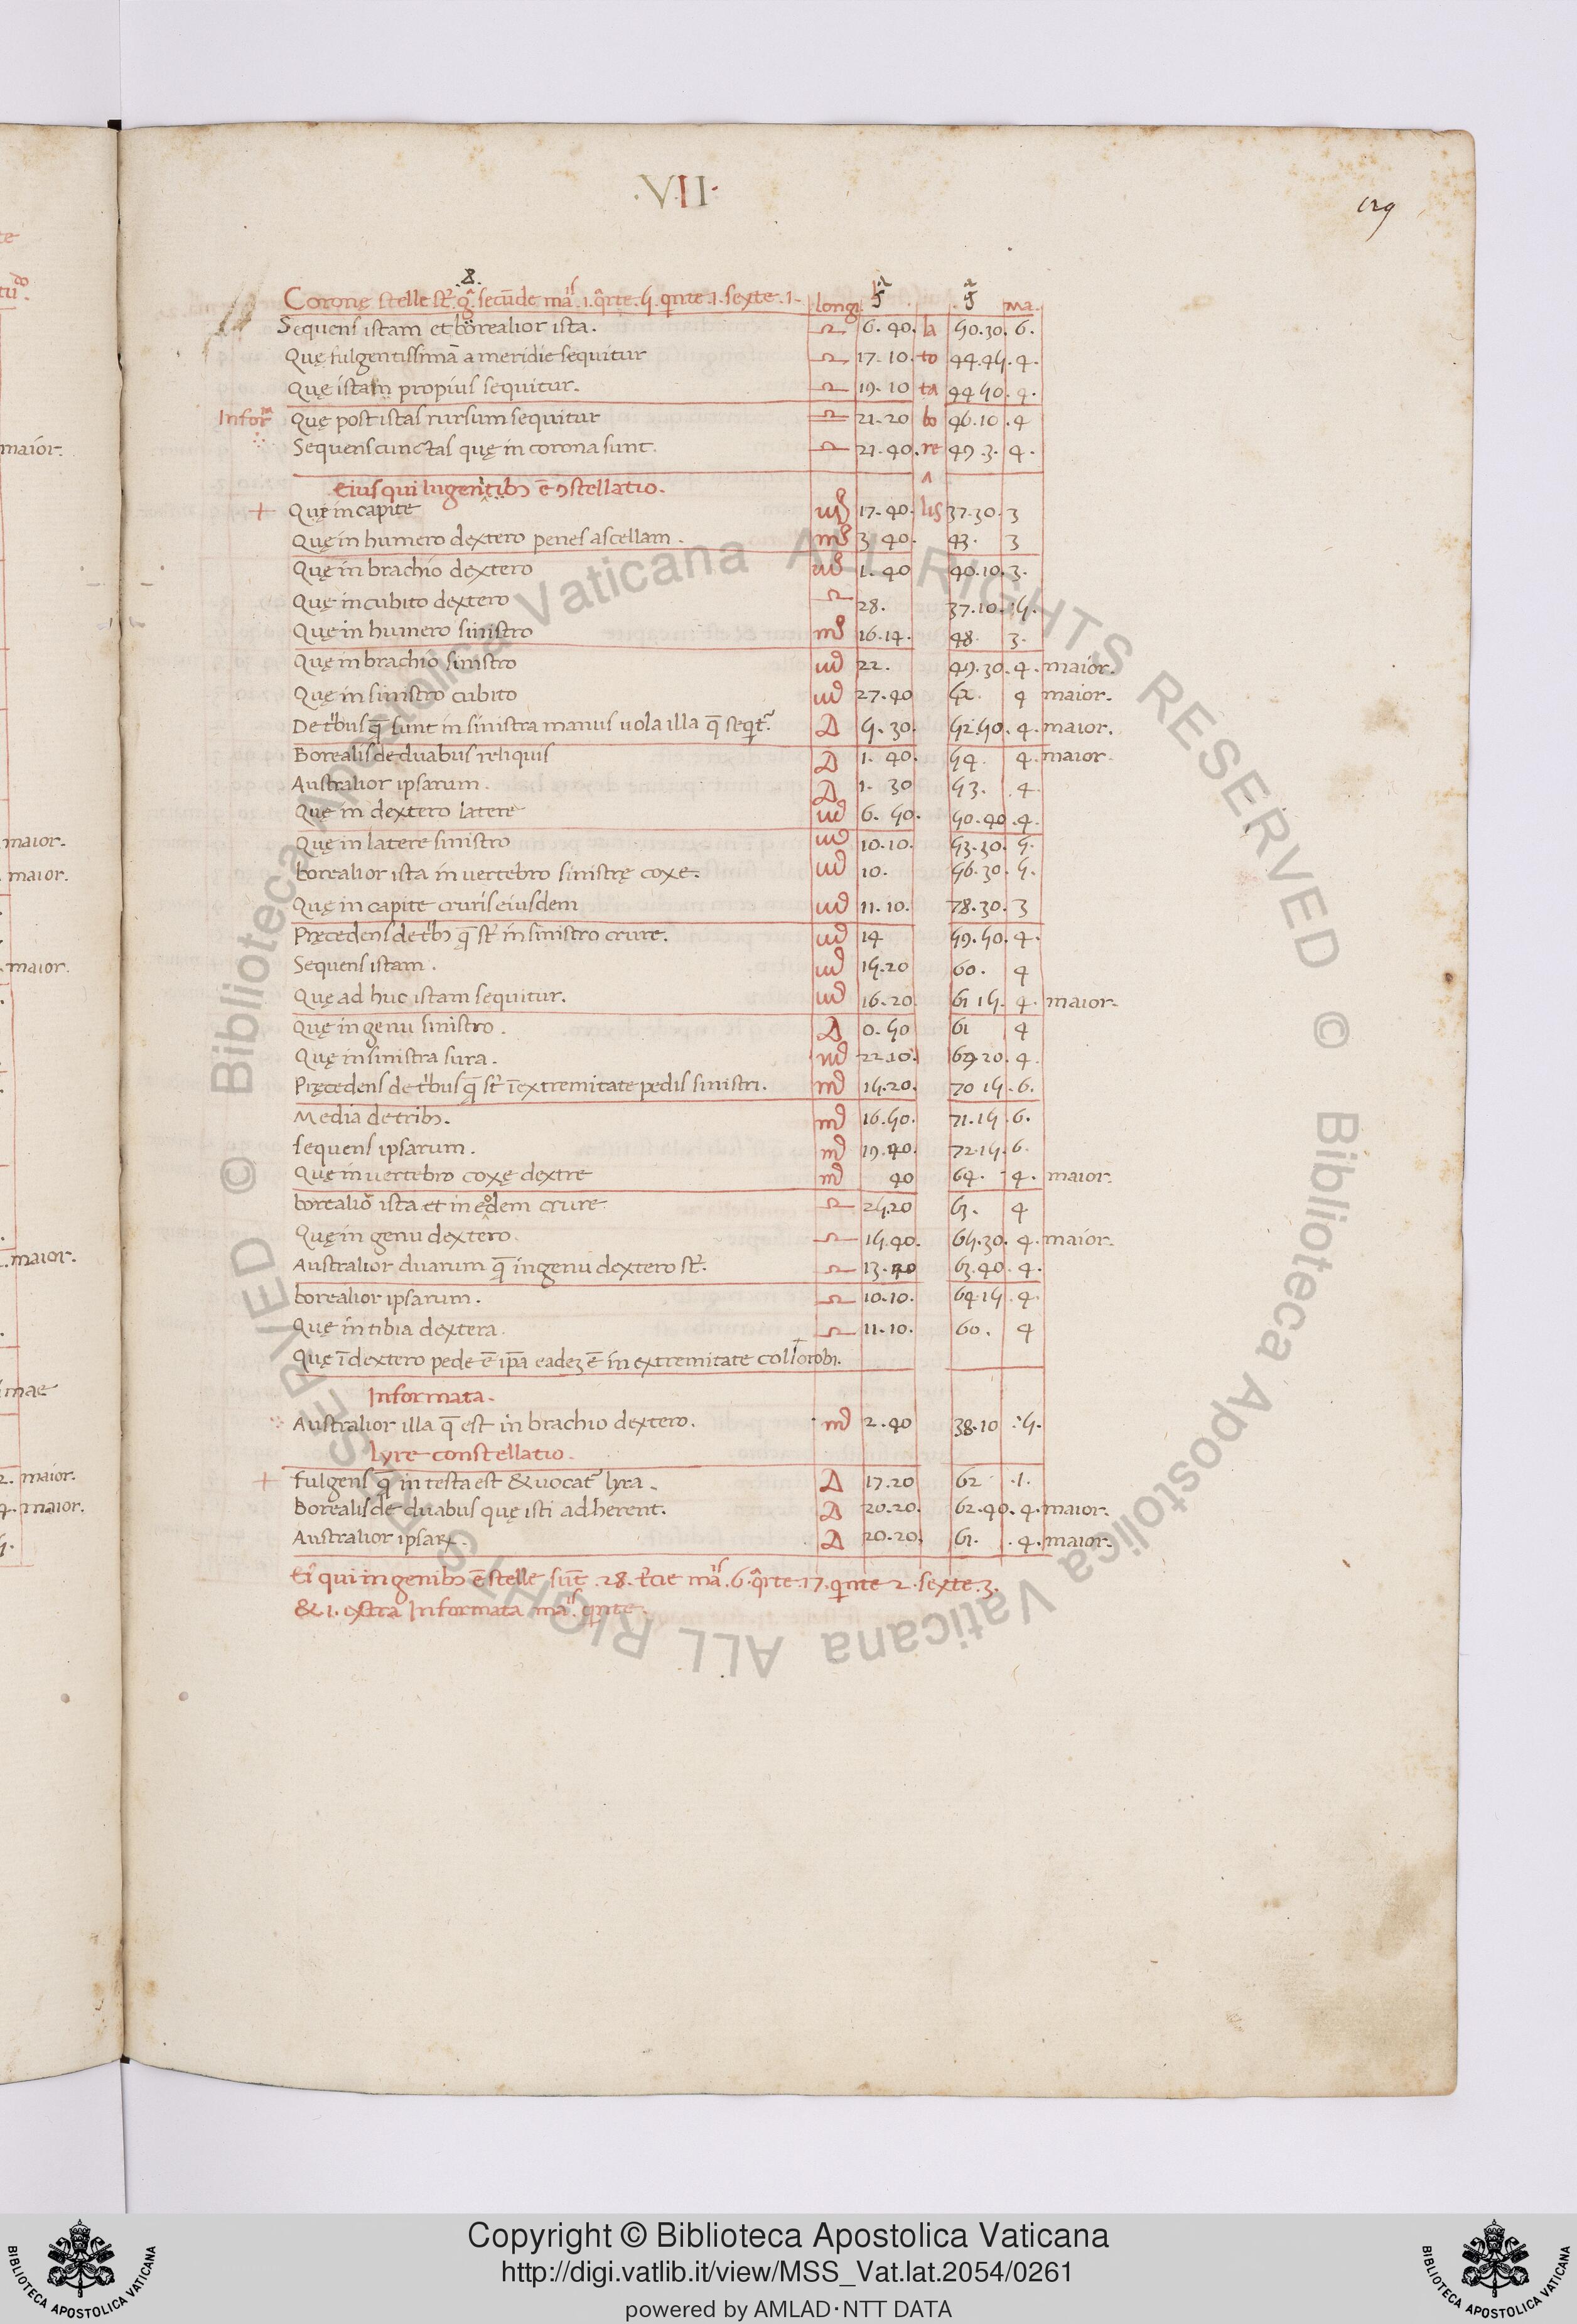 ·VII·
129
.8.
Coronę stelle st̄. 9ᵃ. secūde māis .1. qrte .5. qnte .1. sexte .1. longi. g̃ g̃ ma.
Sequens istam et borealior ista. ♎ 6. 40. la 50.30. 6.
Quę fulgentissimā a meridie sequitur ♎ 17. 10. to 44.45. 4.
Quę istam propius sequitur. ♎ 19. 10 ta 44 50. 4.
Inforᵐ Quę post istas rursum sequitur ♎ 21. 20 bo 46. 10. 4
Sequens cunctas quę in corona sunt. ♎ 21. 40. re 49. 3. 4.
Eius qui in genibꝫ ē ꝯstellatio.
+ Quę in capite ♏ 17. 40. lis 37. 30. 3
Quę in humero dextero penes ascellam. ♏ 3 40. 43. 3
Quę in brachio dextero ♏ 1. 40 40. 10. 3.
Quę in cubito dextero ♎ 28. 37. 10. 5.
Quę in humero sinistro ♏ 16. 14. 48. 3.
Quę in brachio sinistro ♏ 22. 49. 30. 4. maior.
Quę in sinistro cubito ♏ 27. 40 52. 4 maior.
De tribus q̄ sunt in sinistra manus uola illa q̄ seqt̃. ♐ 5. 30. 52.50. 4. maior.
Borealis de duabus reliquis ♐ 1. 40. 54. 4. maior.
Australior ipsarum. ♐ 1. 30 53. 4.
Quę in dextero latere ♏ 6. 50. 50. 40. 4.
Quę in latere sinistro ♏ 10. 10. 53. 30. 5.
borealior ista in vertebro sinistrę coxe. ♏ 10. 56. 30. 5.
Quę in capite cruris eiusdem ♏ 11. 10. 78. 30. 3
Pręcedens de tibꝫ q̄ st̄ in sinistro crure. ♏ 14 59. 50. 4.
Sequens istam. ♏ 15. 20 60. 4
Quę ad huc istam sequitur. ♏ 16. 20 61 15. 4. maior.
Quę in genu sinistro. ♐ 0. 50 61 4
Quę in sinistra sura. ♏ 22 10. 69 20. 4.
Pręcedens de tibus q̄ st̄ ī extremitate pedis sinistri. ♏ 15. 20. 70 15. 6.
Media de tribꝫ. ♏ 16. 50. 71. 15. 6.
sequens ipsarum. ♏ 19. 40. 72. 15. 6.
Quę in vertebro coxę dextre ♏ 40 64. 4. maior.
borealiōr ista et in eodem crure ♎ 25.20 63. 4
Quę in genu dextero. ♎ 15. 40. 65. 30. 4. maior.
Australior duarum q̄ in genu dextero st̄. ♎ 13. 40 63. 40. 4.
borealior ipsarum. ♎ 10. 10. 64. 15. 4.
Quę in tibia dextera. ♎ 11. 10. 60. 4
Quę ī dextero pede ē ip̄a eadeꝫ ē in extremitate collorobi.
Informata.
Australior illa q̄ est in brachio dextero. ♏ 2. 40 38. 10 5.
Lyre constellatio.
+ fulgens q̄ in testa est & uocat̃ lyra. ♐ 17. 20 62 .1.
Borealis de duabus quę isti adherent. ♐ 20. 20. 62. 40. 4. maior.
Australior ipsaꝝ. ♐ 20. 20. 61. 4. maior.
Ei qui in genibꝫ ē stelle sūt .28. tcie māis .6. qrte .17. qnte 2. sexte .3.
& 1. extra Informata māis. qnte.
Copyright © Biblioteca Apostolica Vaticana
http://digi.vatlib.it/view/MSS_Vat.lat.2054/0261
powered by AMLAD·NTT DATA